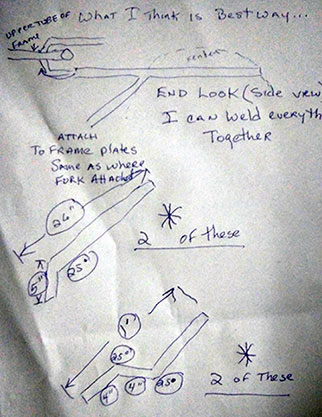 What I Think is Best way...
UPPER TUBE OF
FRAME
fender
END LOOK (Side view)
I can weld everyth
Together
ATTACH
To FRAME plates
Same as where
FORK Attached
26"
5"
25°
* 2 of these
1'
25°
4" 4" 25°
* 2 of These